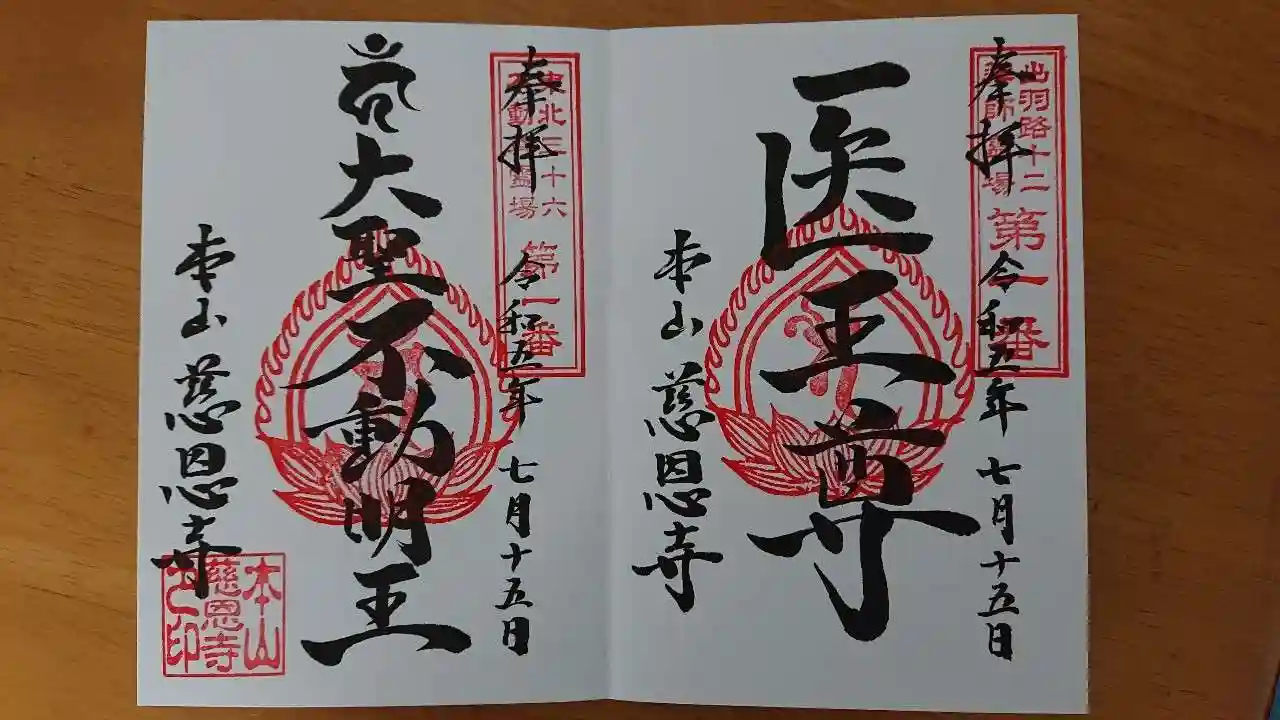 出羽路十二
薬師霊場
第一番
奉拝
令和五年 七月十五日
医王尊
本山 慈恩寺
東北三十六
不動霊場
第一番
奉拝
令和五年 七月十五日
大聖不動明王
本山 慈恩寺
本山
慈恩寺
之印